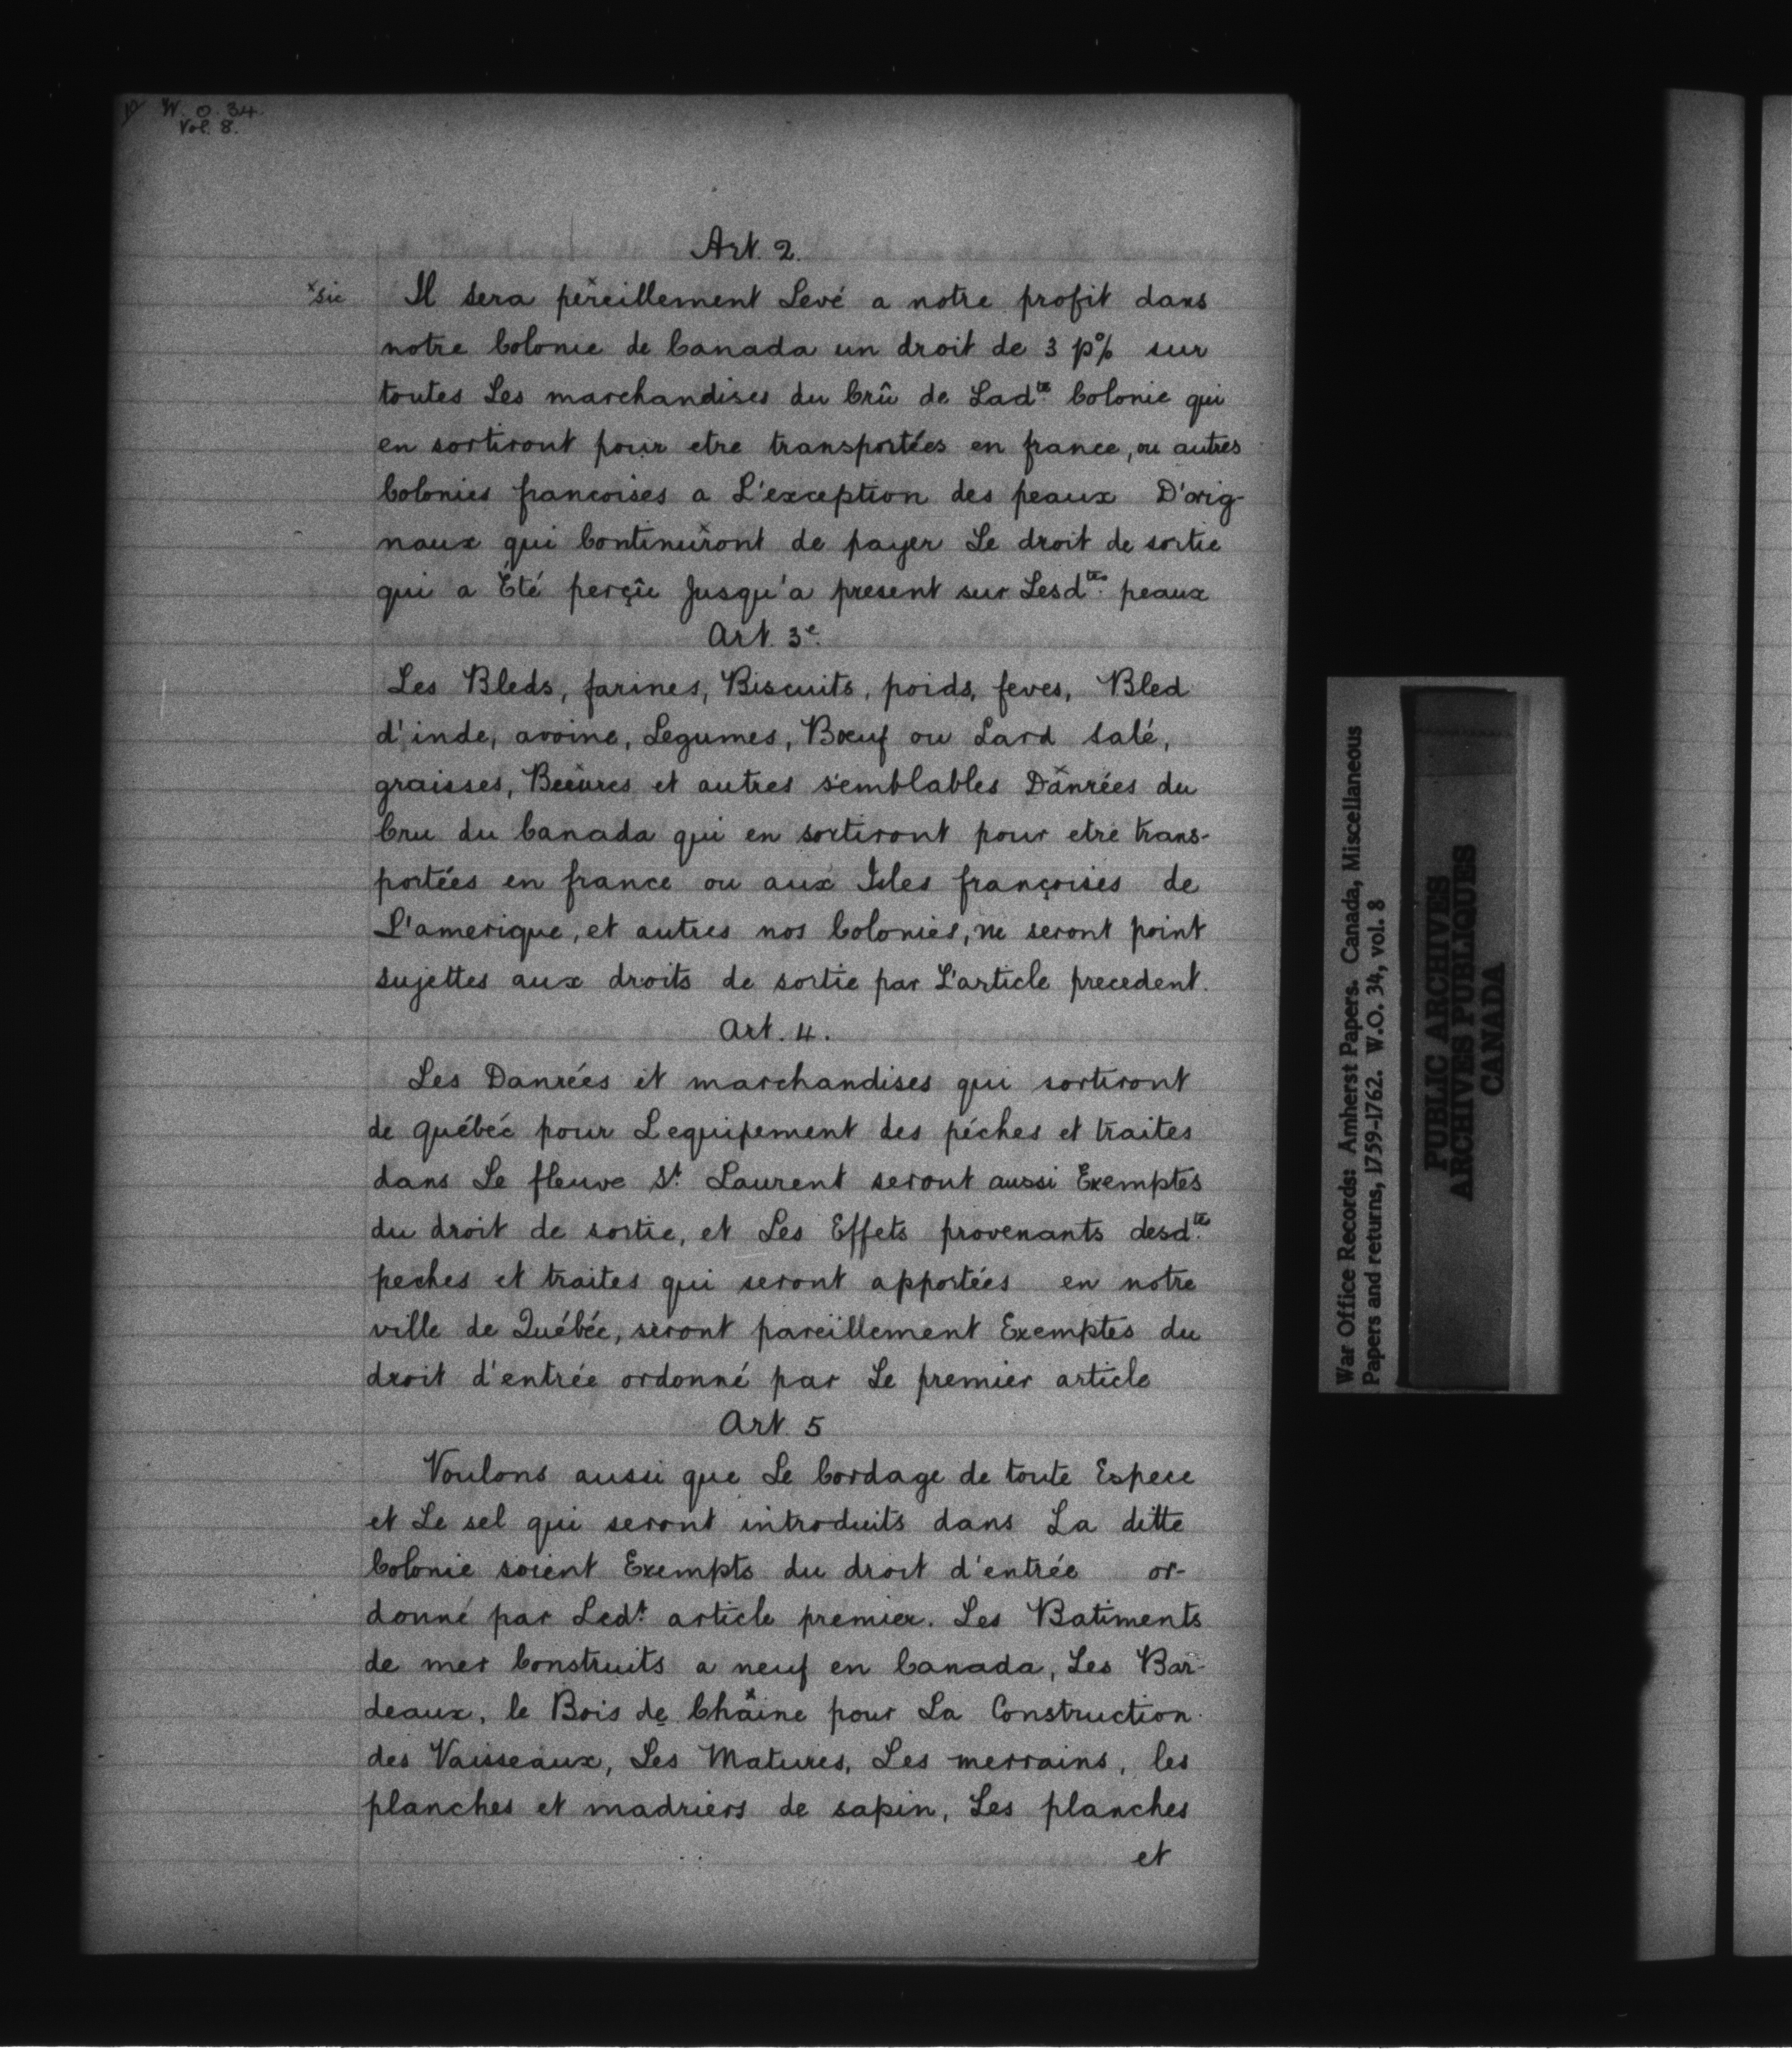 W. O. 34.
Vol. 8.
Art. 2.
xsic Il sera pĕreillement Levé a notre profit dans
notre Colonie de Canada un droit de 3 p% sur
toutes Les marchandises du Crû de Ladte Colonie qui
en sortiront pour etre transportées en france, ou autres
Colonies francoises a L'exception des peaux D'orig-
naux qui Continuxront de payer Le droit de sortie
qui a Été perçûe Jusqu'a present sur Lesdtes peaux
Art. 3e.
Les Bleds, farines, Biscuits, poids, feves, Bled
d'inde, avoine, Legumes, Bœuf ou Lard salé,
graisses, Beeures et autres semblables Danrées du
Cru du Canada qui en sortiront pour etre trans-
portées en france ou aux Isles françoises de
L'amerique, et autres nos Colonies, ne seront point
sujettes aux droits de sortie par L'article precedent.
Art. 4.
Les Danrées et marchandises qui sortiront
de québéc pour Lequipement des péches et traites
dans Le fleuve St. Laurent seront aussi Exemptes
du droit de sortie, et Les Effets provenants desdtes
peches et traites qui seront apportées en notre
ville de Québéc, seront pareillement Exemptes du
droit d'entrée ordonné par Le premier article
Art. 5
Voulons aussi que Le Cordage de toute Espece
et Le sel qui seront introduits dans La ditte
Colonie soient Exempts du droit d'entrée or-
donné par Ledt. article premier. Les Batiments
de mer Construits a neuf en Canada, Les Bar-
deaux, le Bois de Chaxine pour La Construction
des Vaisseaux, Les Matures, Les merrains, les
planches et madriers de sapin, Les planches
et
War Office Records: Amherst Papers. Canada, Miscellaneous
Papers and returns, 1759-1762. W.O. 34, vol. 8
PUBLIC ARCHIVES
ARCHIVES PUBLIQUES
CANADA